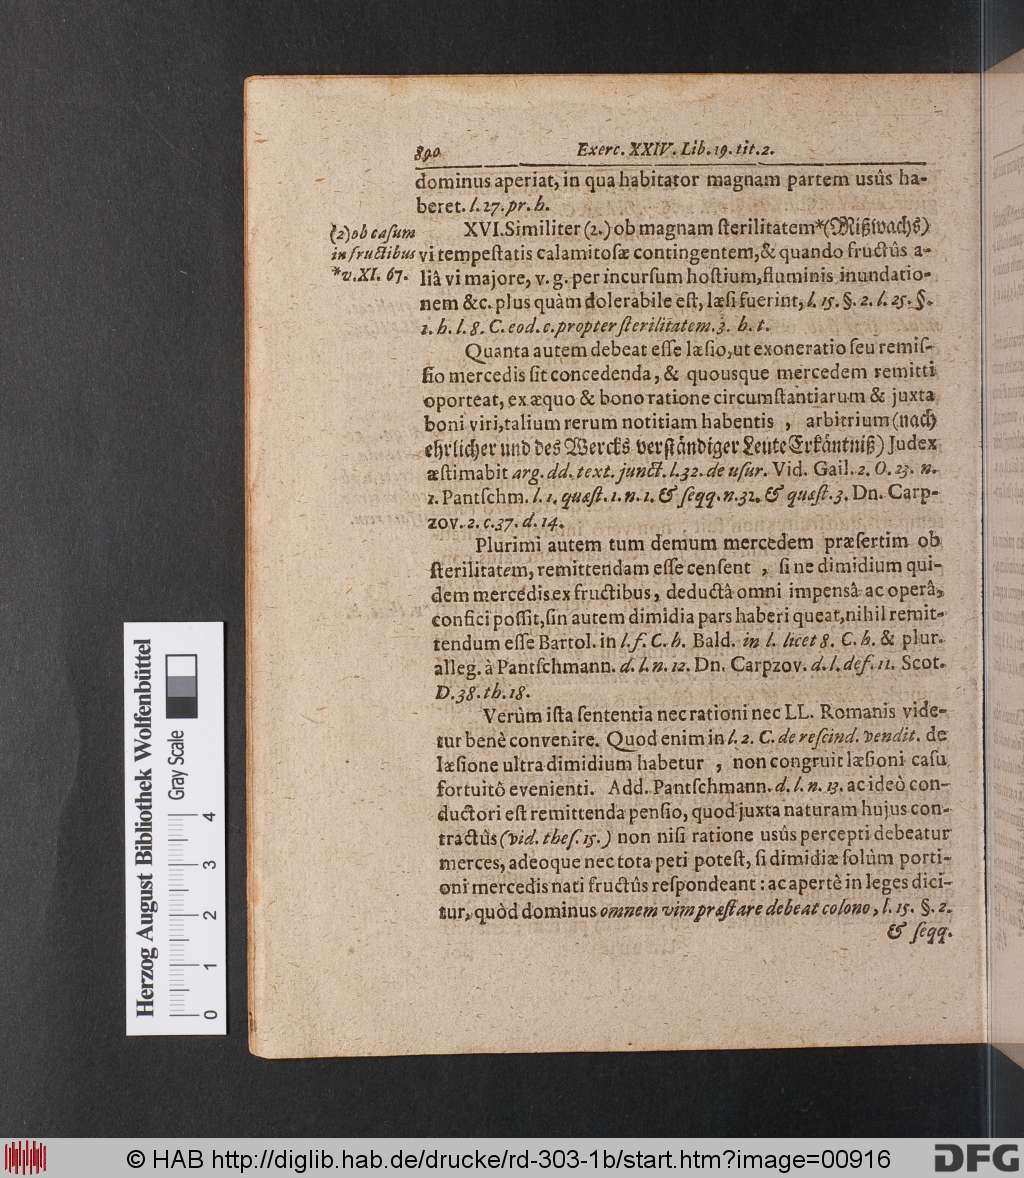 890 Exerc. XXIV. Lib. 19. tit. 2.
dominus aperiat, in qua habitator magnam partem usûs ha-
beret. l. 27. pr. h.
(2) ob casum
in fructibus
*v. XI. 67.
XVI. Similiter (2.) ob magnam sterilitatem*(Mißwachs)
vi tempestatis calamitosæ contingentem, & quando fructûs a-
liâ vi majore, v. g. per incursum hostium, fluminis inundatio-
nem &c. plus quàm dolerabile est, læsi fuerint, l. 15. §. 2. l. 25. §.
1. h. l. 8. C. eod. c. propter sterilitatem. 3. h. t.
Quanta autem debeat esse læsio, ut exoneratio seu remis-
sio mercedis sit concedenda, & quousque mercedem remitti
oporteat, ex æquo & bono ratione circumstantiarum & juxta
boni viri, talium rerum notitiam habentis, arbitrium (nach
ehrlicher und des Wercks verständiger Leute Erkäntniß) Judex
æstimabit arg. dd. text. junct. l. 32. de usur. Vid. Gail. 2. O. 23. n.
1. Pantschm. l. 1. quæst. 1. n. 1. & seqq. n. 32. & quæst. 3. Dn. Carp-
zov. 2. c. 37. d. 14.
Plurimi autem tum demum mercedem præsertim ob
sterilitatem, remittendam esse censent, si ne dimidium qui-
dem mercedis ex fructibus, deductâ omni impensâ ac operâ,
confici possit, sin autem dimidia pars haberi queat, nihil remit-
tendum esse Bartol. in l. f. C. h. Bald. in l. licet 8. C. h. & plur.
alleg. à Pantschmann. d. l. n. 12. Dn. Carpzov. d. l. def. 11. Scot.
D. 38. th. 18.
Verùm ista sententia nec rationi nec LL. Romanis vide-
tur benè convenire. Quod enim in l. 2. C. de rescind. vendit. de
læsione ultra dimidium habetur, non congruit læsioni casu
fortuitô evenienti. Add. Pantschmann. d. l. n. 13. ac ideò con-
ductori est remittenda pensio, quod juxta naturam hujus con-
tractûs (vid. thes. 15.) non nisi ratione usûs percepti debeatur
merces, adeoque nec tota peti potest, si dimidiæ solùm porti-
oni mercedis nati fructûs respondeant: ac apertè in leges dici-
tur, quòd dominus omnem vim præstare debeat colono, l. 15. §. 2.
& seqq.
Herzog August Bibliothek Wolfenbüttel
Gray Scale
0 1 2 3 4
© HAB http://diglib.hab.de/drucke/rd-303-1b/start.htm?image=00916
DFG